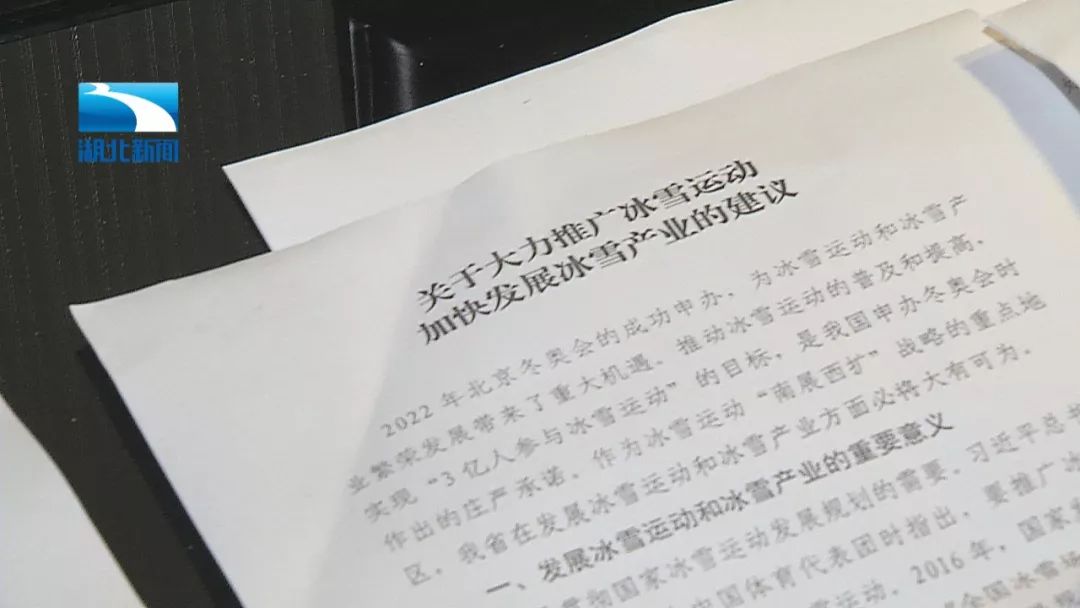 湖北新闻
关于大力推广冰雪运动
加快发展冰雪产业的建议
2022 年北京冬奥会的成功申办，为冰雪运动和冰雪产
业繁荣发展带来了重大机遇。推动冰雪运动的普及和提高，
实现“3 亿人参与冰雪运动”的目标，是我国申办冬奥会时
作出的庄严承诺。作为冰雪运动“南展西扩”战略的重点地
区，我省在发展冰雪运动和冰雪产业方面必将大有可为。
一、发展冰雪运动和冰雪产业的重要意义
贯彻国家冰雪运动发展规划的需要。习近平总书
中国体育代表团时指出，要推广冰
运动。2016 年，国家发
全国冰雪场